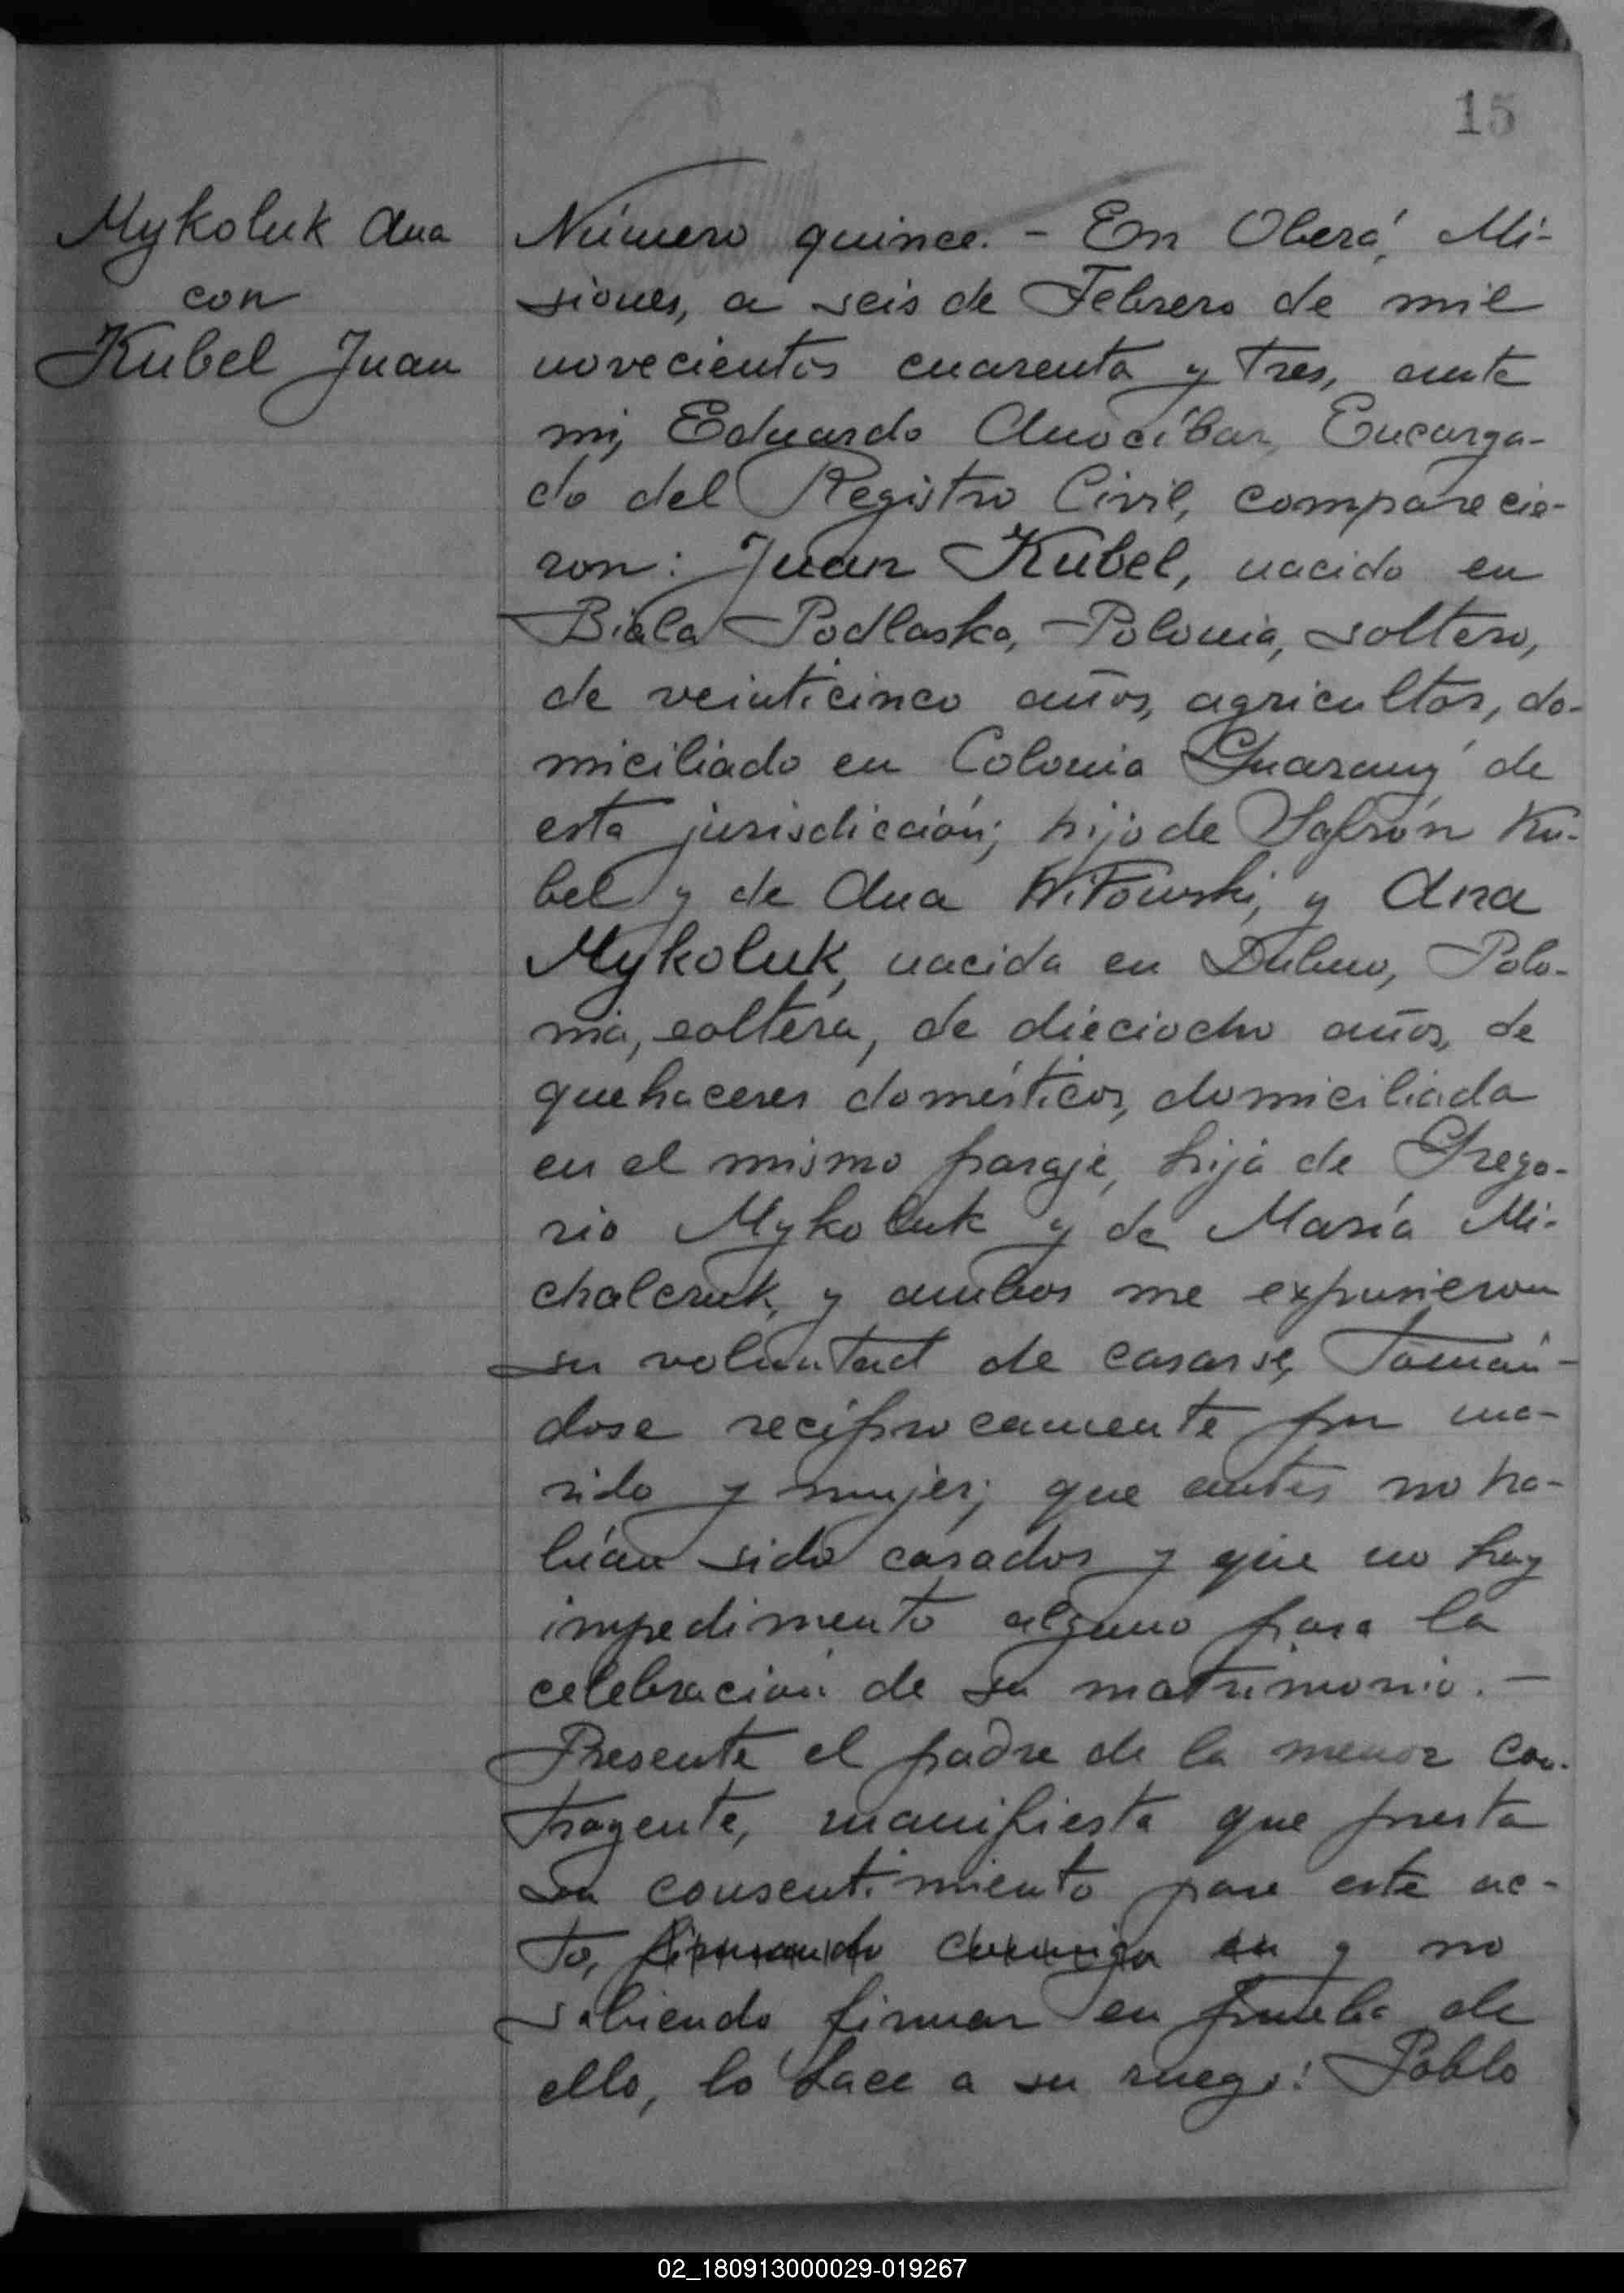 15
Mykoluk Ana
con
Kubel Juan
Número quince. - En Oberá, Mi-
siones, a seis de Febrero de mil
novecientos cuarenta y tres, ante
mi, Eduardo Anocíbar, Encarga-
do del Registro Civil, comparecie-
ron: Juan Kubel, nacido en
Biala Podlaska, Polonia, soltero,
de veinticinco años, agricultor, do-
miciliado en Colonia Guarany de
esta jurisdicción; hijo de Safrón Ku-
bel y de Ana Witowski, y Ana
Mykoluk, nacida en Dubno, Polo-
nia, soltera, de dieciocho años, de
quehaceres domésticos, domiciliada
en el mismo paraje, hija de Grego-
rio Mykoluk y de María Mi-
chalczuk, y ambos me expusieron
su voluntad de casarse, tomán-
dose recíprocamente por ma-
rido y mujer; que antes no ha-
bían sido casados y que no hay
impedimento alguno para la
celebración de su matrimonio. -
Presente el padre de la menor con-
trayente, manifiesta que presta
su consentimiento para este ac-
to, firmando conmigo en y no
sabiendo firmar en prueba de
ello, lo hace a su ruego: Pablo
02_180913000029-019267